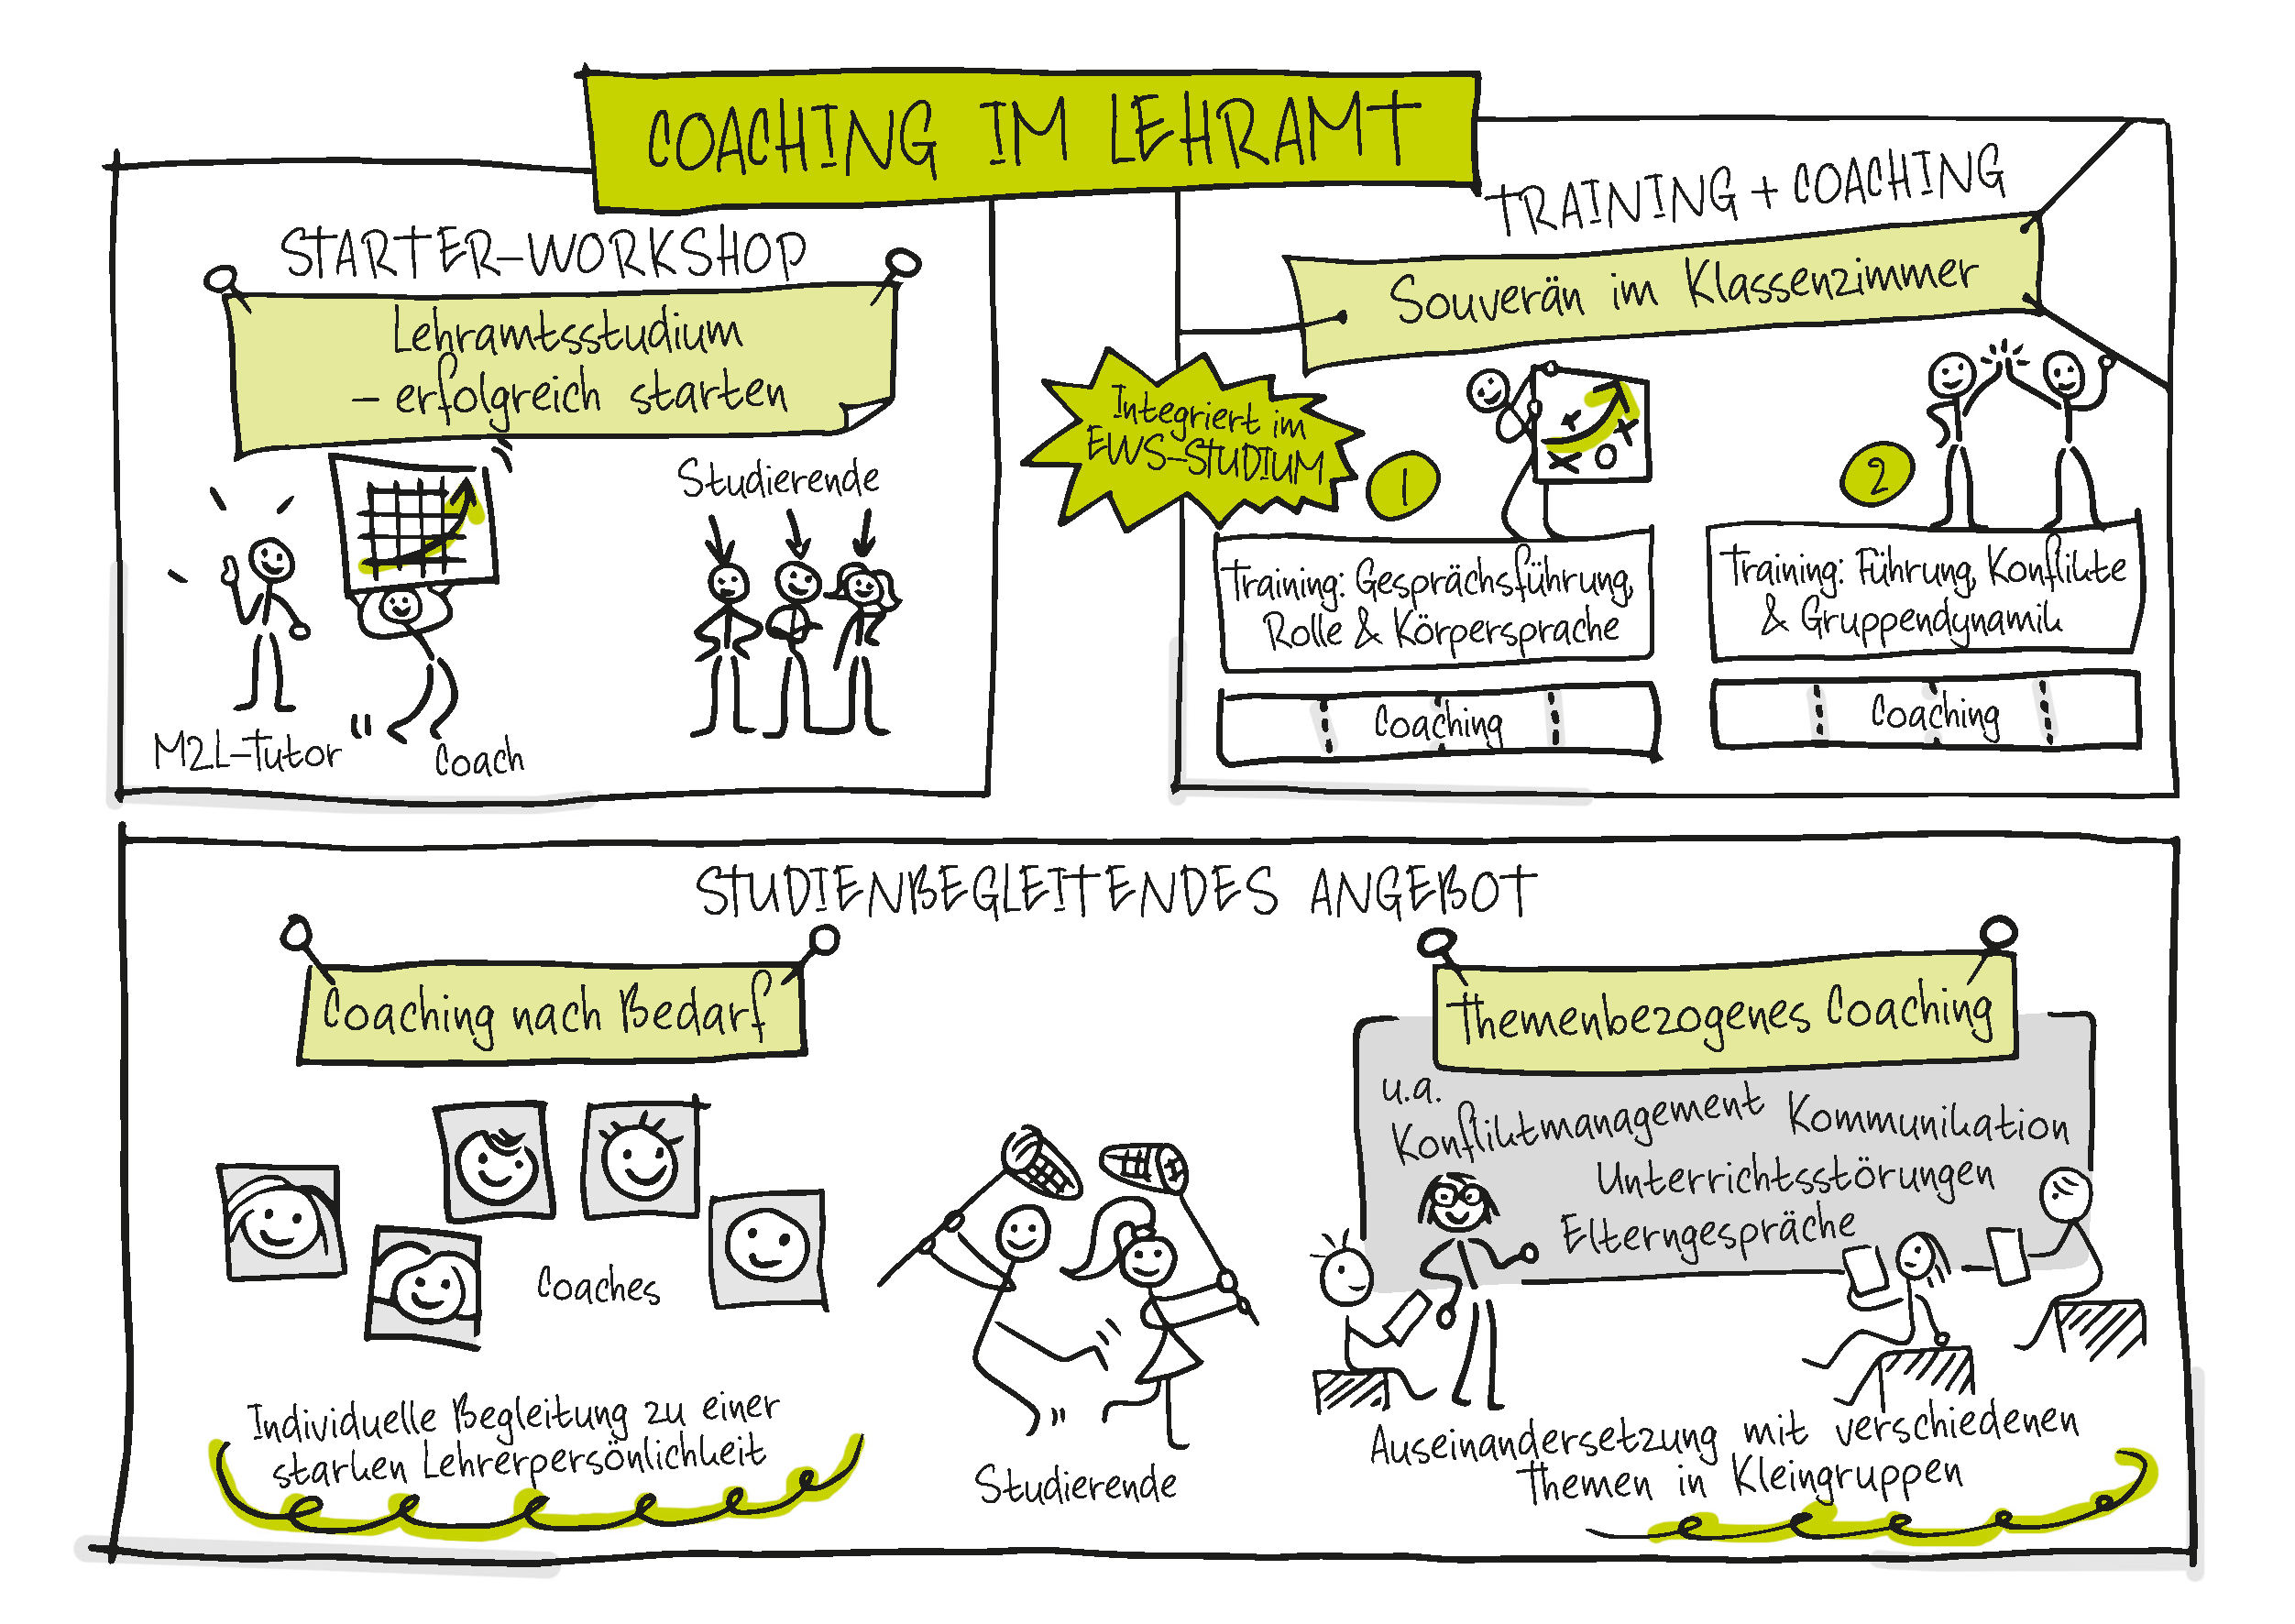 COACHING IM LEHRAMT
STARTER-WORKSHOP
Lehramtsstudium
- erfolgreich starten
Studierende
M2L-Tutor
Coach
TRAINING + COACHING
Souverän im Klassenzimmer
Integriert im
EWS-STUDIUM
1
Training: Gesprächsführung,
Rolle & Körpersprache
Coaching
2
Training: Führung, Konflikte
& Gruppendynamik
Coaching
STUDIENBEGLEITENDES ANGEBOT
Coaching nach Bedarf
Coaches
Individuelle Begleitung zu einer
starken Lehrerpersönlichkeit
Studierende
Themenbezogenes Coaching
u.a.
Konfliktmanagement Kommunikation
Unterrichtsstörungen
Elterngespräche
Auseinandersetzung mit verschiedenen
Themen in Kleingruppen